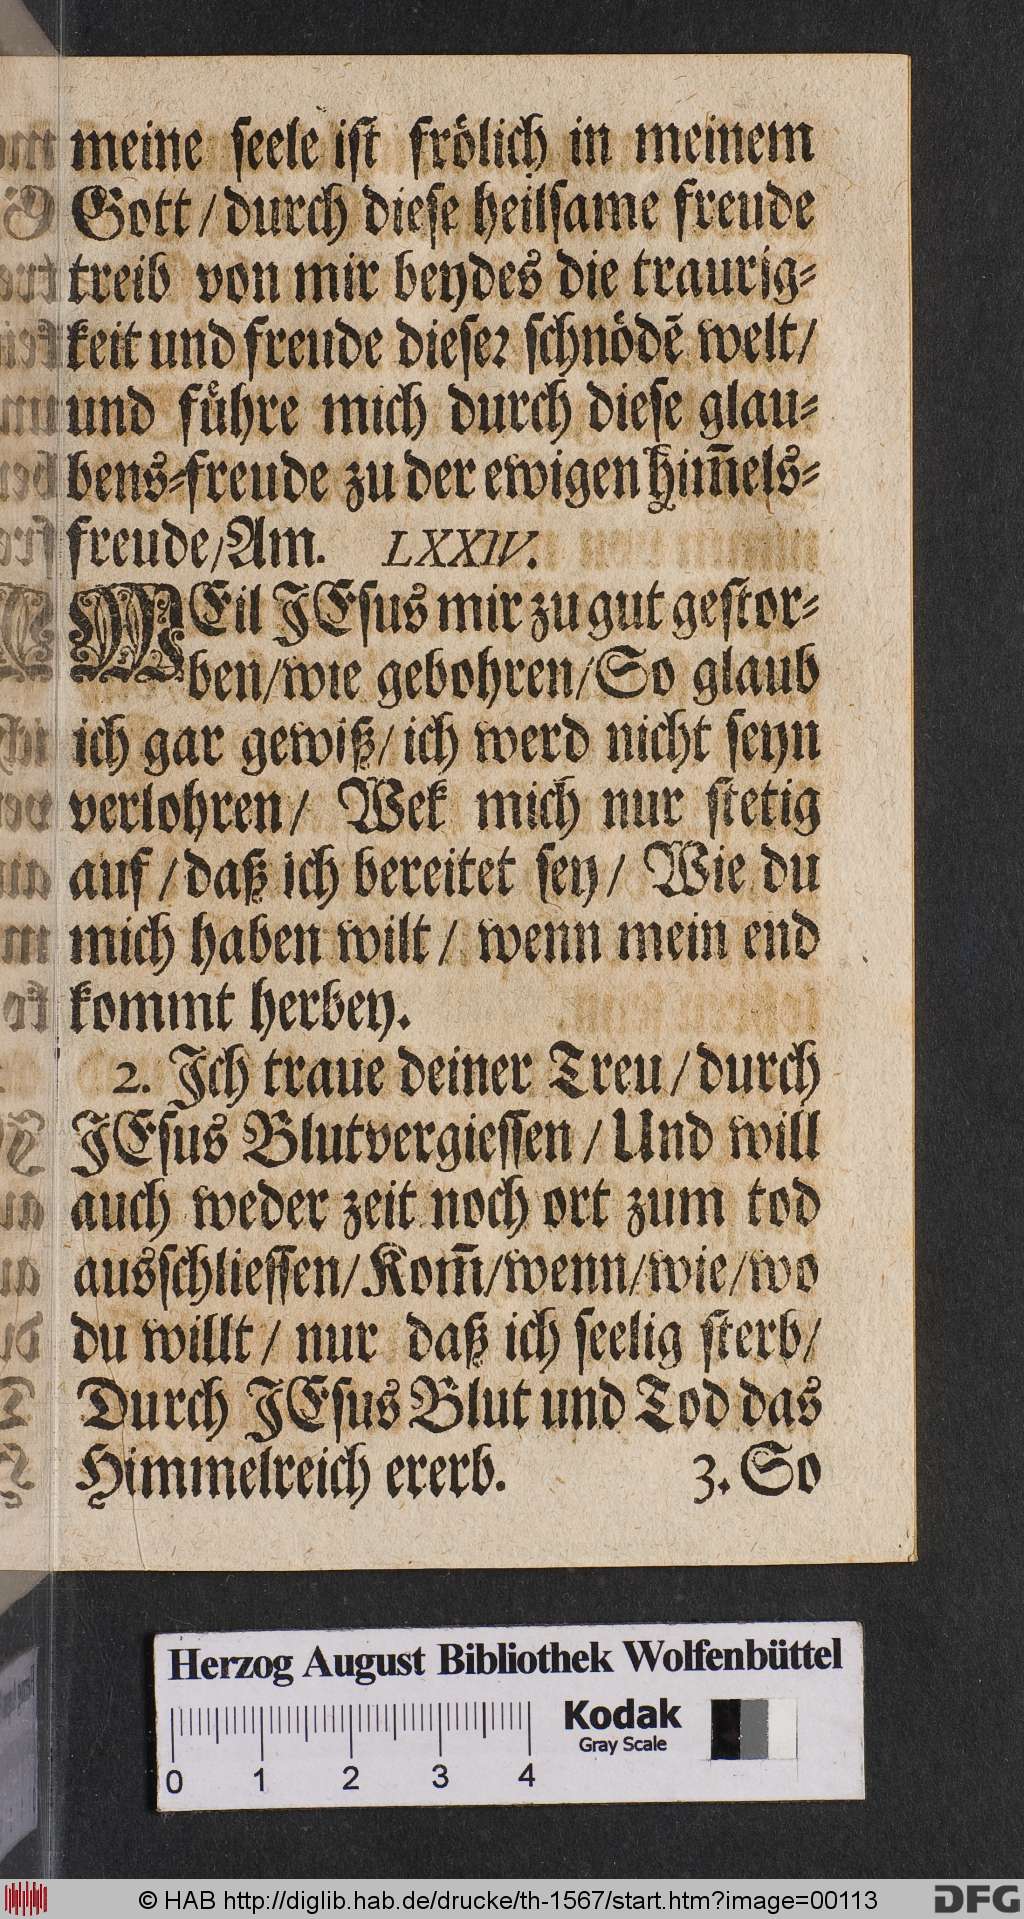 meine seele ist frölich in meinem
Gott / durch diese heilsame freude
treib von mir beydes die traurig⸗
keit und freude dieser schnödẽ welt /
und fuͤhre mich durch diese glau⸗
bens⸗freude zu der ewigen him̃els⸗
freude / Am. LXXIV.
WEil JEsus mir zu gut gestor⸗
ben / wie gebohren / So glaub
ich gar gewiß / ich werd nicht seyn
verlohren / Wek mich nur stetig
auf / daß ich bereitet sey / Wie du
mich haben wilt / wenn mein end
kommt herbey.
2. Ich traue deiner Treu / durch
JEsus Blutvergiessen / Und will
auch weder zeit noch ort zum tod
ausschliessen / Kom̃ / wenn / wie / wo
du willt / nur daß ich seelig sterb /
Durch JEsus Blut und Tod das
Himmelreich ererb. 3. So
Herzog August Bibliothek Wolfenbüttel
Kodak
Gray Scale
0 1 2 3 4
© HAB http://diglib.hab.de/drucke/th-1567/start.htm?image=00113
DFG